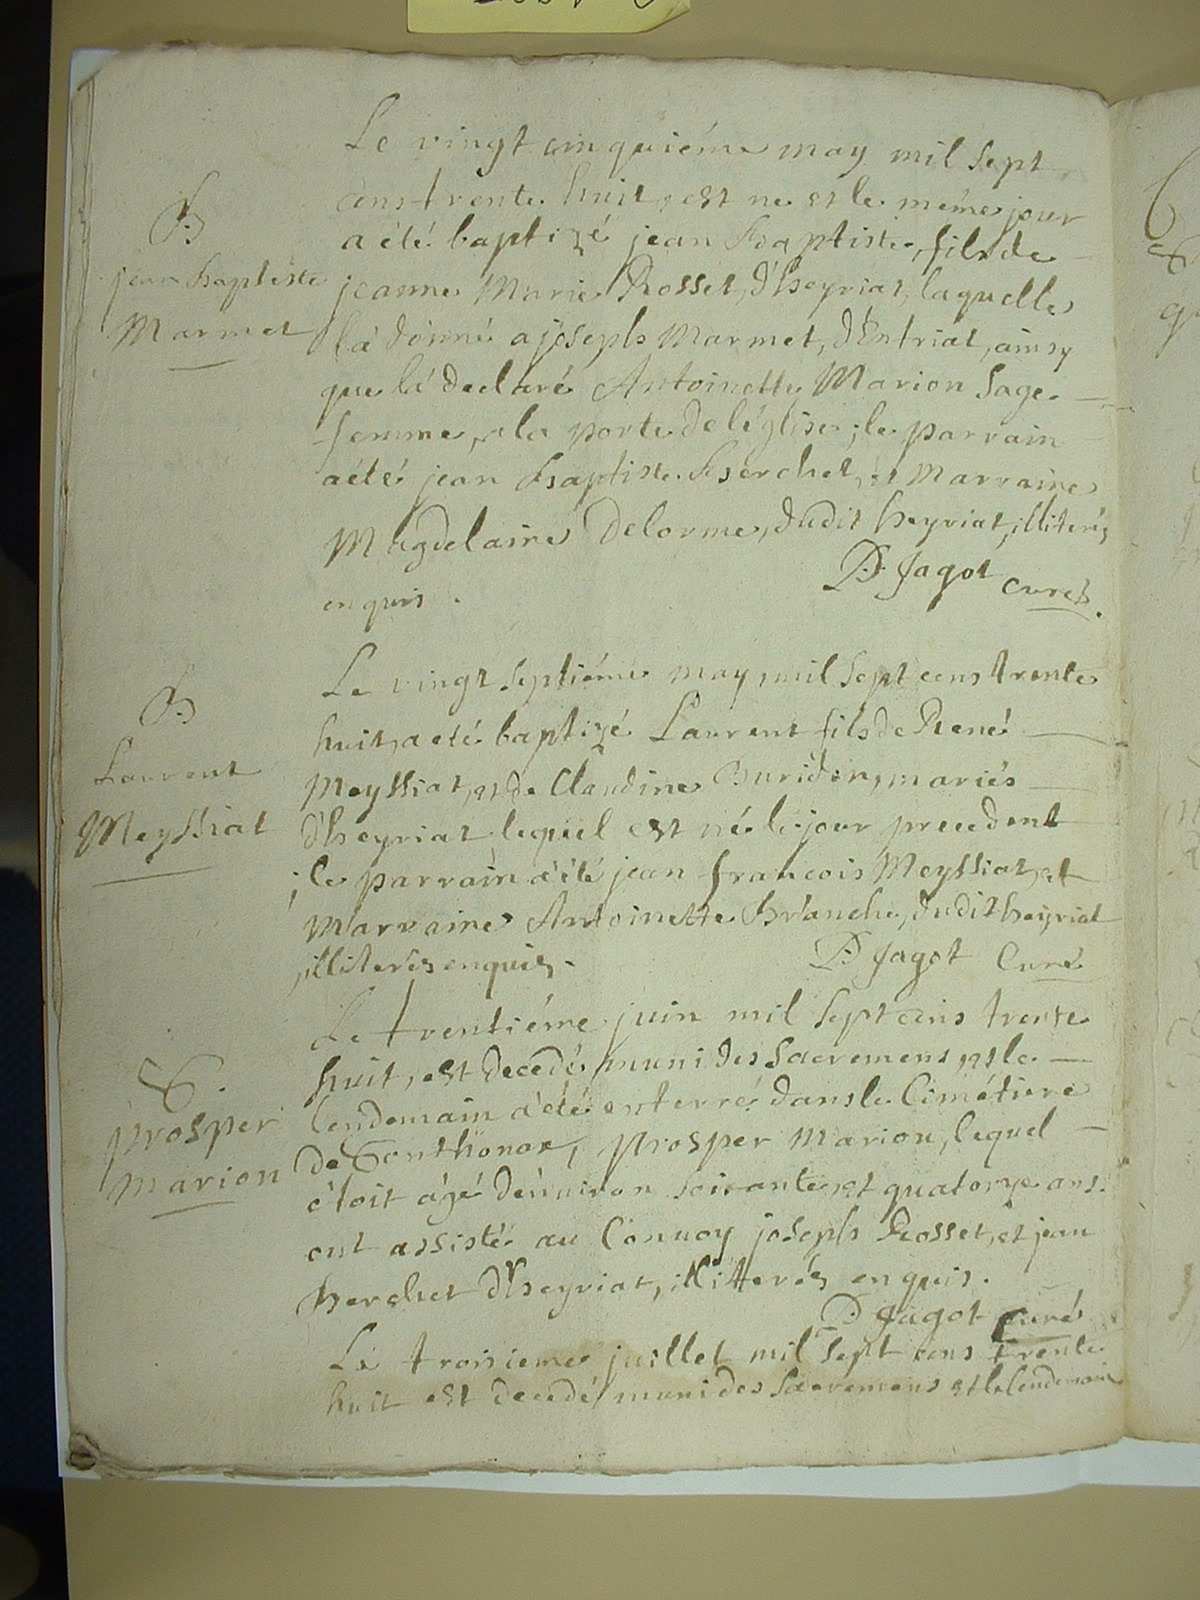 Le vingt cinquiéme may mil sept
cens trente huit, est ne et le méme jour
B
a été baptizé jean Baptiste, fils de
jean baptiste
jeanne Marie Rosset, d'heyriat, laquelle
Marmet
la donné a joseph Marmet, d'Entriat, ainsy
que lá declaré Antoinette Marion sage
femme, a la porte de léglise; le parrain
a été jean Baptiste Berchet, et Marraine
Magdelaine Delorme, dudit heyriat, illiterés
enquis.
D. Jagot curé.
Le vingt septiéme may, mil sept cens trente
B
huit, a eté baptizé Laurent fils de René
Laurent
Meyssiat, et de Claudine Buridon, mariés
Meyssiat
d'heyriat, lequel est né le jour precedent
; le parrain a été jean francois Meyssiat, et
Marraine Antoinette Branche, dudit heyriat
, illiterés enquis.
D. Jagot Curé
Le trentiéme juin mil sept cens trente
huit, est decedé, muni des sacremens, et le
S.
lendemain a été enterré dans le Cimétiere
prosper
de Sonthonax, prosper Marion, lequel
marion
étoit ágé dénviron soixante et quatorze ans.
ont assisté au Convoy joseph Rosset, et jean
berchet d'heyriat, illiterés enquis.
D. Jagot curé
Le troisieme juillet mil sept cens trente
huit est decedé, muni des sacremens et le lendemain